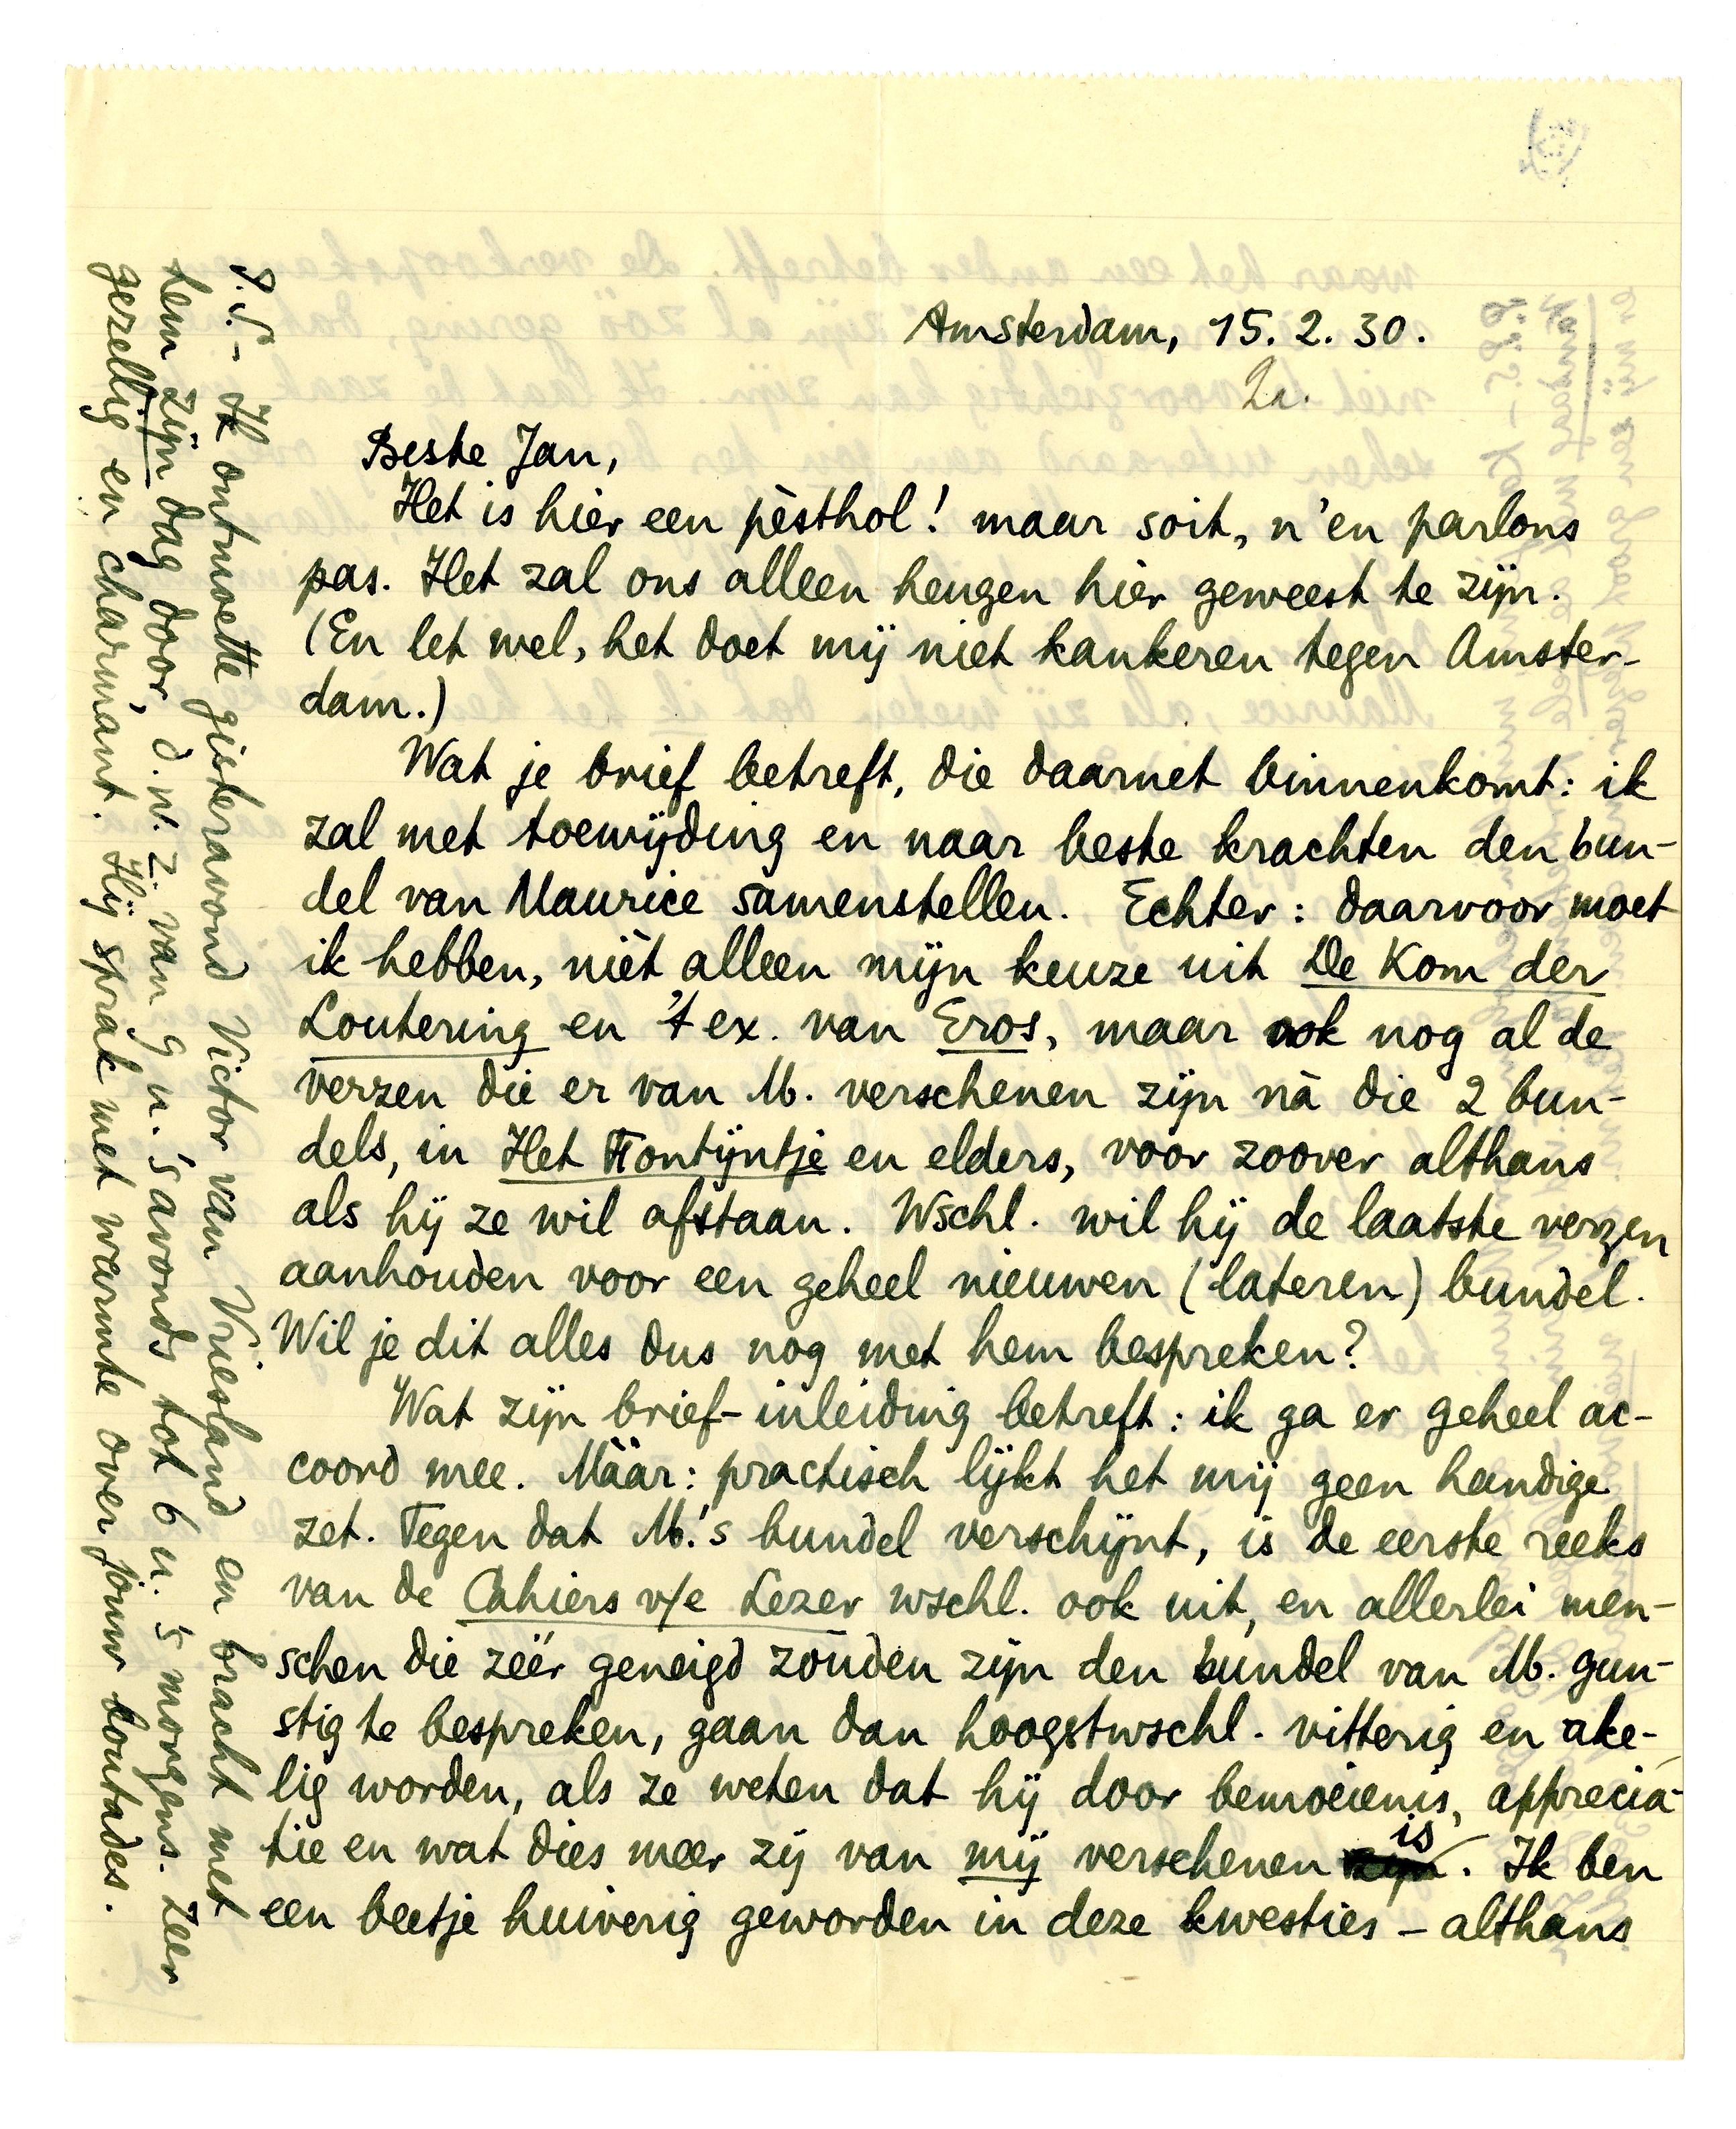 Amsterdam, 15. 2. 30.
Za.
Beste Jan,
Het is hier een pèsthol! maar soit, n'en parlons
pas. Het zal ons alleen heugen hier geweest te zijn.
(En let wel, het doet mij niet kankeren tegen Amster-
dam.)
Wat je brief betreft, die daarnet binnenkomt: ik
zal met toewijding en naar beste krachten den bun-
del van Maurice samenstellen. Echter: daarvoor moet
ik hebben, nièt alleen mijn keuze uit De Kom der
Loutering en 't ex. van Eros, maar ook nog al de
verzen die er van M. verschenen zijn nà die 2 bun-
dels, in Het Fontijntje en elders, voor zoover althans
als hij ze wil afstaan. Wschl. wil hij de laatste verzen
aanhouden voor een geheel nieuwen (lateren) bundel.
Wil je dit alles dus nog met hem bespreken?
Wat zijn brief-inleiding betreft: ik ga er geheel ac-
coord mee. Máár: practisch lijkt het mij geen handige
zet. Tegen dat M.'s bundel verschijnt, is de eerste reeks
van de Cahiers v/e Lezer wschl. ook uit, en allerlei men-
schen die zéér geneigd zouden zijn den bundel van M. gun-
stig te bespreken, gaan dan hoogstwschl. vitterig en ake-
lig worden, als ze weten dat hij door bemoeienis, apprecia-
tie en wat dies meer zij van mij verschenen is. Ik ben
een beetje huiverig geworden in deze kwesties – althans
P.S. – Ik ontmoette gisteravond Victor van Vriesland en bracht met
hem zijn dag door, d.w.z. van 9 u. 's avonds tot 6 u. 's morgens. Zeer
gezellig en charmant. Hij sprak met warmte over jouw boutades.